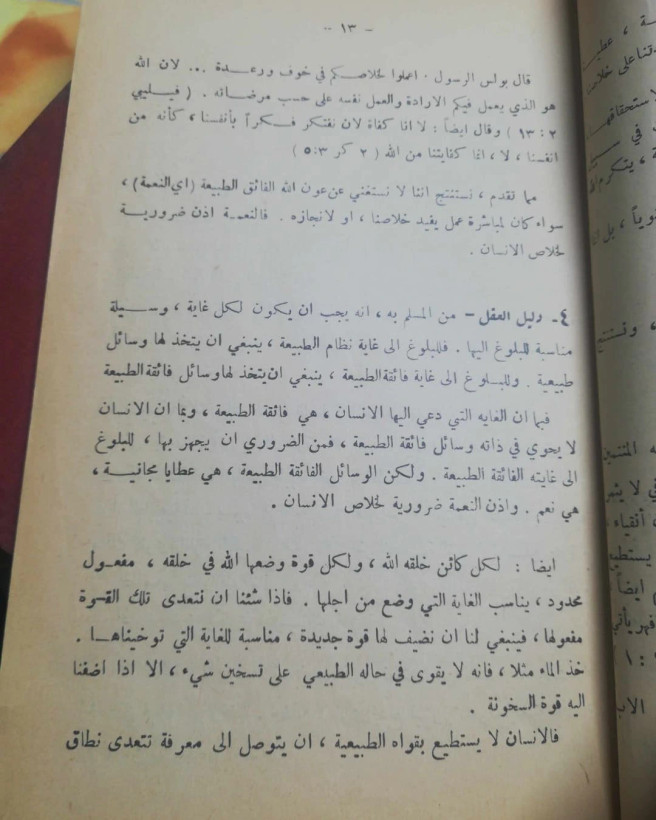 - ١٣ -
قال بولس الرسول . اعملوا لخلاصكم في خوف ورعـــدة ... لان الله
هو الذي يعمل فيكم الارادة والعمل نفسه على حسب مرضـاته . ( فيـليبي
٢ : ١٣ ) وقال ايضاً : لا انا كفاة لان نفتكر فـكراً بأنفسنا ، كأنه من
انفسنا ، لا ، انما كفايتنا من الله ( ٢ كر ٣:٥ )
مما تقدم ، نستنتج اننا لا نستغني عن عون الله الفائق الطبيعة (اي النعمة) ،
سواء كان لمباشرة عمل يفيد خلاصنا ، او لانجازه . فالنعمـة اذن ضروريـة
لخلاص الانسان .
٤ـ دليل العقل – من المسلم به ، انه يجب ان يكون لكل غاية ، وسـيلة
مناسبة للبلوغ اليها . فللبلوغ الى غاية نظام الطبيعة ، ينبغي ان يتخذ لها وسائل
طبيعية . وللبلـوغ الى غاية فائقة الطبيعة ، ينبغي ان يتخذ لها وسائل فائقة الطبيعة
فبما ان الغايه التي دعي اليها الانسان ، هي فائقة الطبيعة ، وبما ان الانسان
لا يحوي في ذاته وسائل فائقة الطبيعة ، فمن الضروري ان يجهز بها ، للبلوغ
الى غايته الفائقة الطبيعة . ولكن الوسائل الفائقة الطبيعة ، هي عطايا مجانيـة ،
هي نعم . واذن النعمة ضرورية لخلاص الانسان .
ايضا : لكل كائن خلقه الله ، ولكل قوة وضعها الله في خلقه ، مفعـول
محدود ، يناسب الغاية التي وضع من اجلها . فاذا شئنا ان نتعدى تلك القـوة
مفعولها ، فينبغي لنا ان نضيف لها قوة جديدة ، مناسبة للغاية التي توخيناهـا .
خذ الماء مثلا ، فانه لا يقوى في حاله الطبيعي على تسخين شيء ، الا اذا اضفنا
اليه قوة السخونة .
فالانسان لا يستطيع بقواه الطبيعية ، ان يتوصل الى معرفة تتعدى نطاق